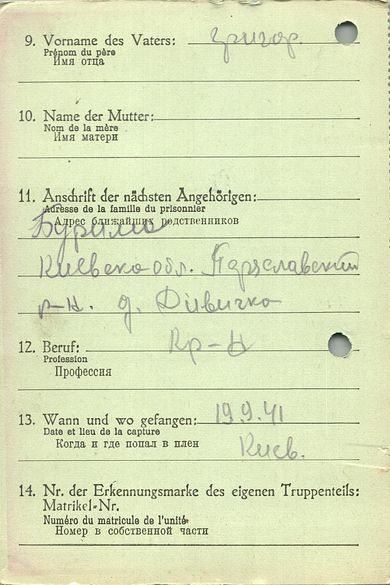 9. Vorname des Vaters: Григор.
Prénom du père
Имя отца
10. Name der Mutter:
Nom de la mère
Имя матери
11. Anschrift der nächsten Angehörigen:
Adresse de la famille du prisonnier
Адрес ближайших родственников
Бурима
Киевско обл. Переславский
р-н. д. Дивичко
12. Beruf: Кр-н
Profession
Профессия
13. Wann und wo gefangen: 19.9.41
Date et lieu de la capture
Когда и где попал в плен
Киев.
14. Nr. der Erkennungsmarke des eigenen Truppenteils:
Matrikel-Nr.
Numéro du matricule de l'unité
Номер в собственной части